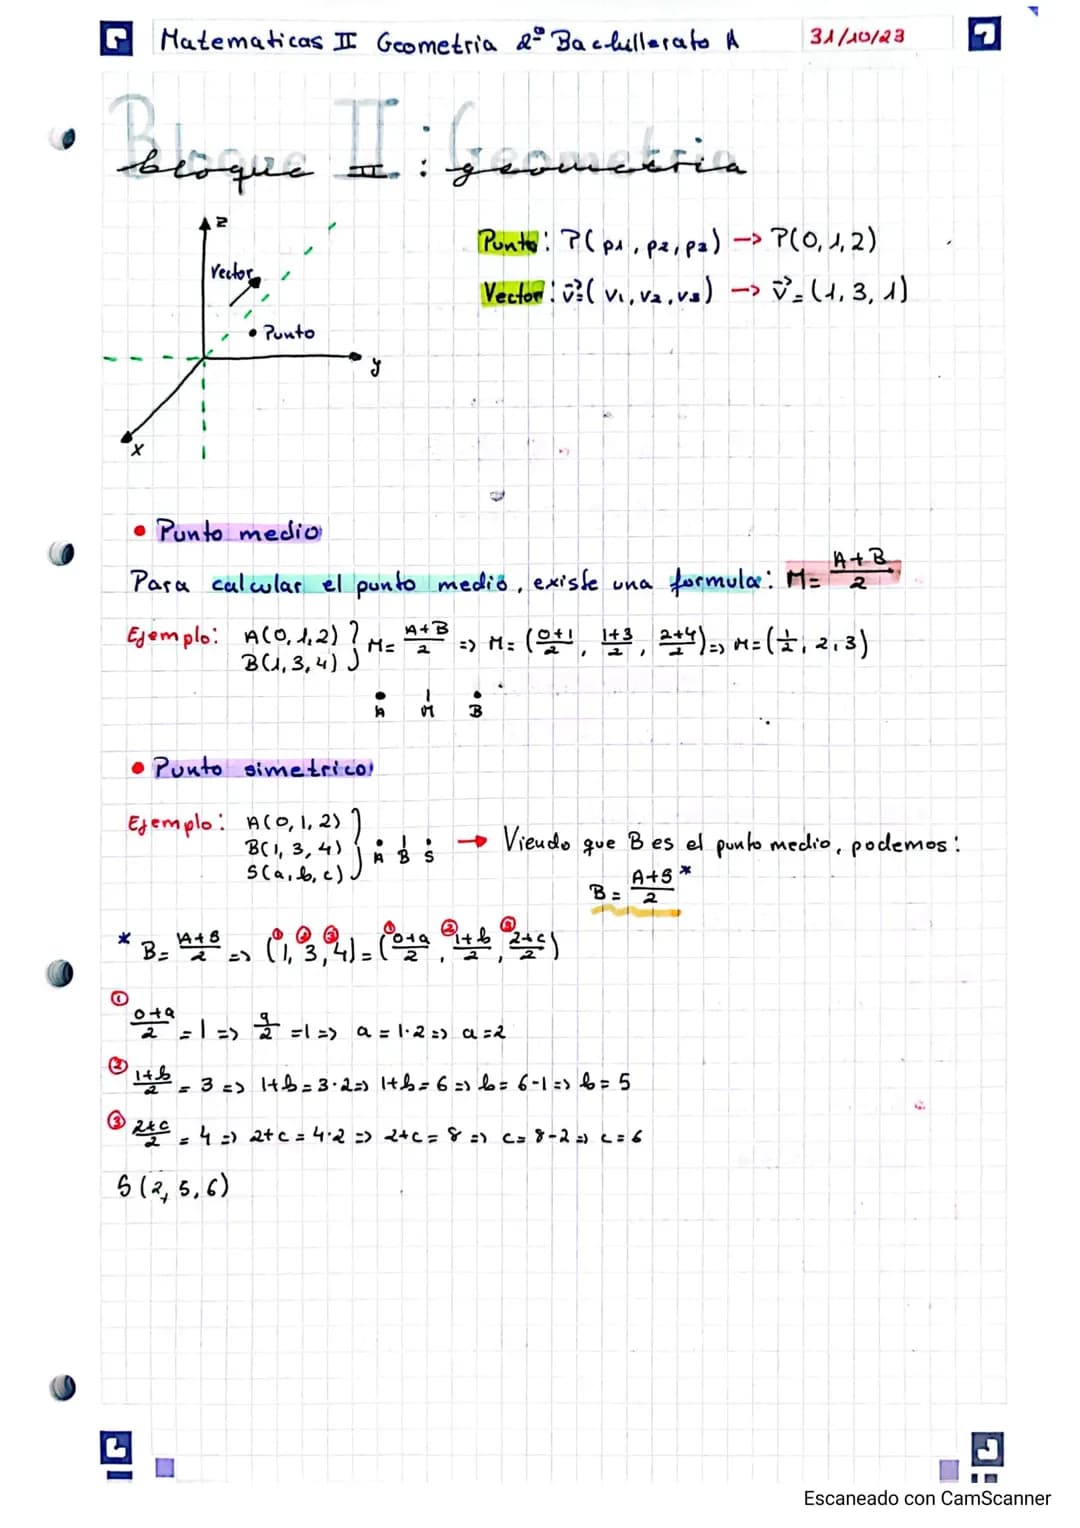 Matematicas II Geometria 2º Bachillerato A 31/10/23
Bloque II: Geometria
bloque II: geometria
z
Vector
Punto
y
x
Punto: P(p1, p2, p3) → P(0,1,2)
Vector: v⃗=(v1, v2, v3) → v⃗=(1,3,1)
• Punto medio
Para calcular el punto medio, existe una formula: M= A+B/2
Ejemplo: A(0,1,2) } M= A+B/2 => M= (0+1/2, 1+3/2, 2+4/2) => M=(1/2, 2,3)
B(1,3,4)
A M B
• Punto simetrico
Ejemplo: A(0,1,2)
B(1,3,4) } A B S → Viendo que B es el punto medio, podemos:
S(a,b,c)
B= A+S/2 *
* B= A+S/2 => (1, 3, 4) = (0+a/2, 1+b/2, 2+c/2)
① ② ③ ① ② ③
① 0+a/2 = 1 => a/2 =1 => a = 1·2 => a=2
② 1+b/2 = 3 => 1+b=3·2 => 1+b=6 => b= 6-1 => b= 5
③ 2+c/2 = 4 => 2+c=4·2 => 2+c= 8 => c= 8-2 => c=6
S(2,5,6)
Escaneado con CamScanner